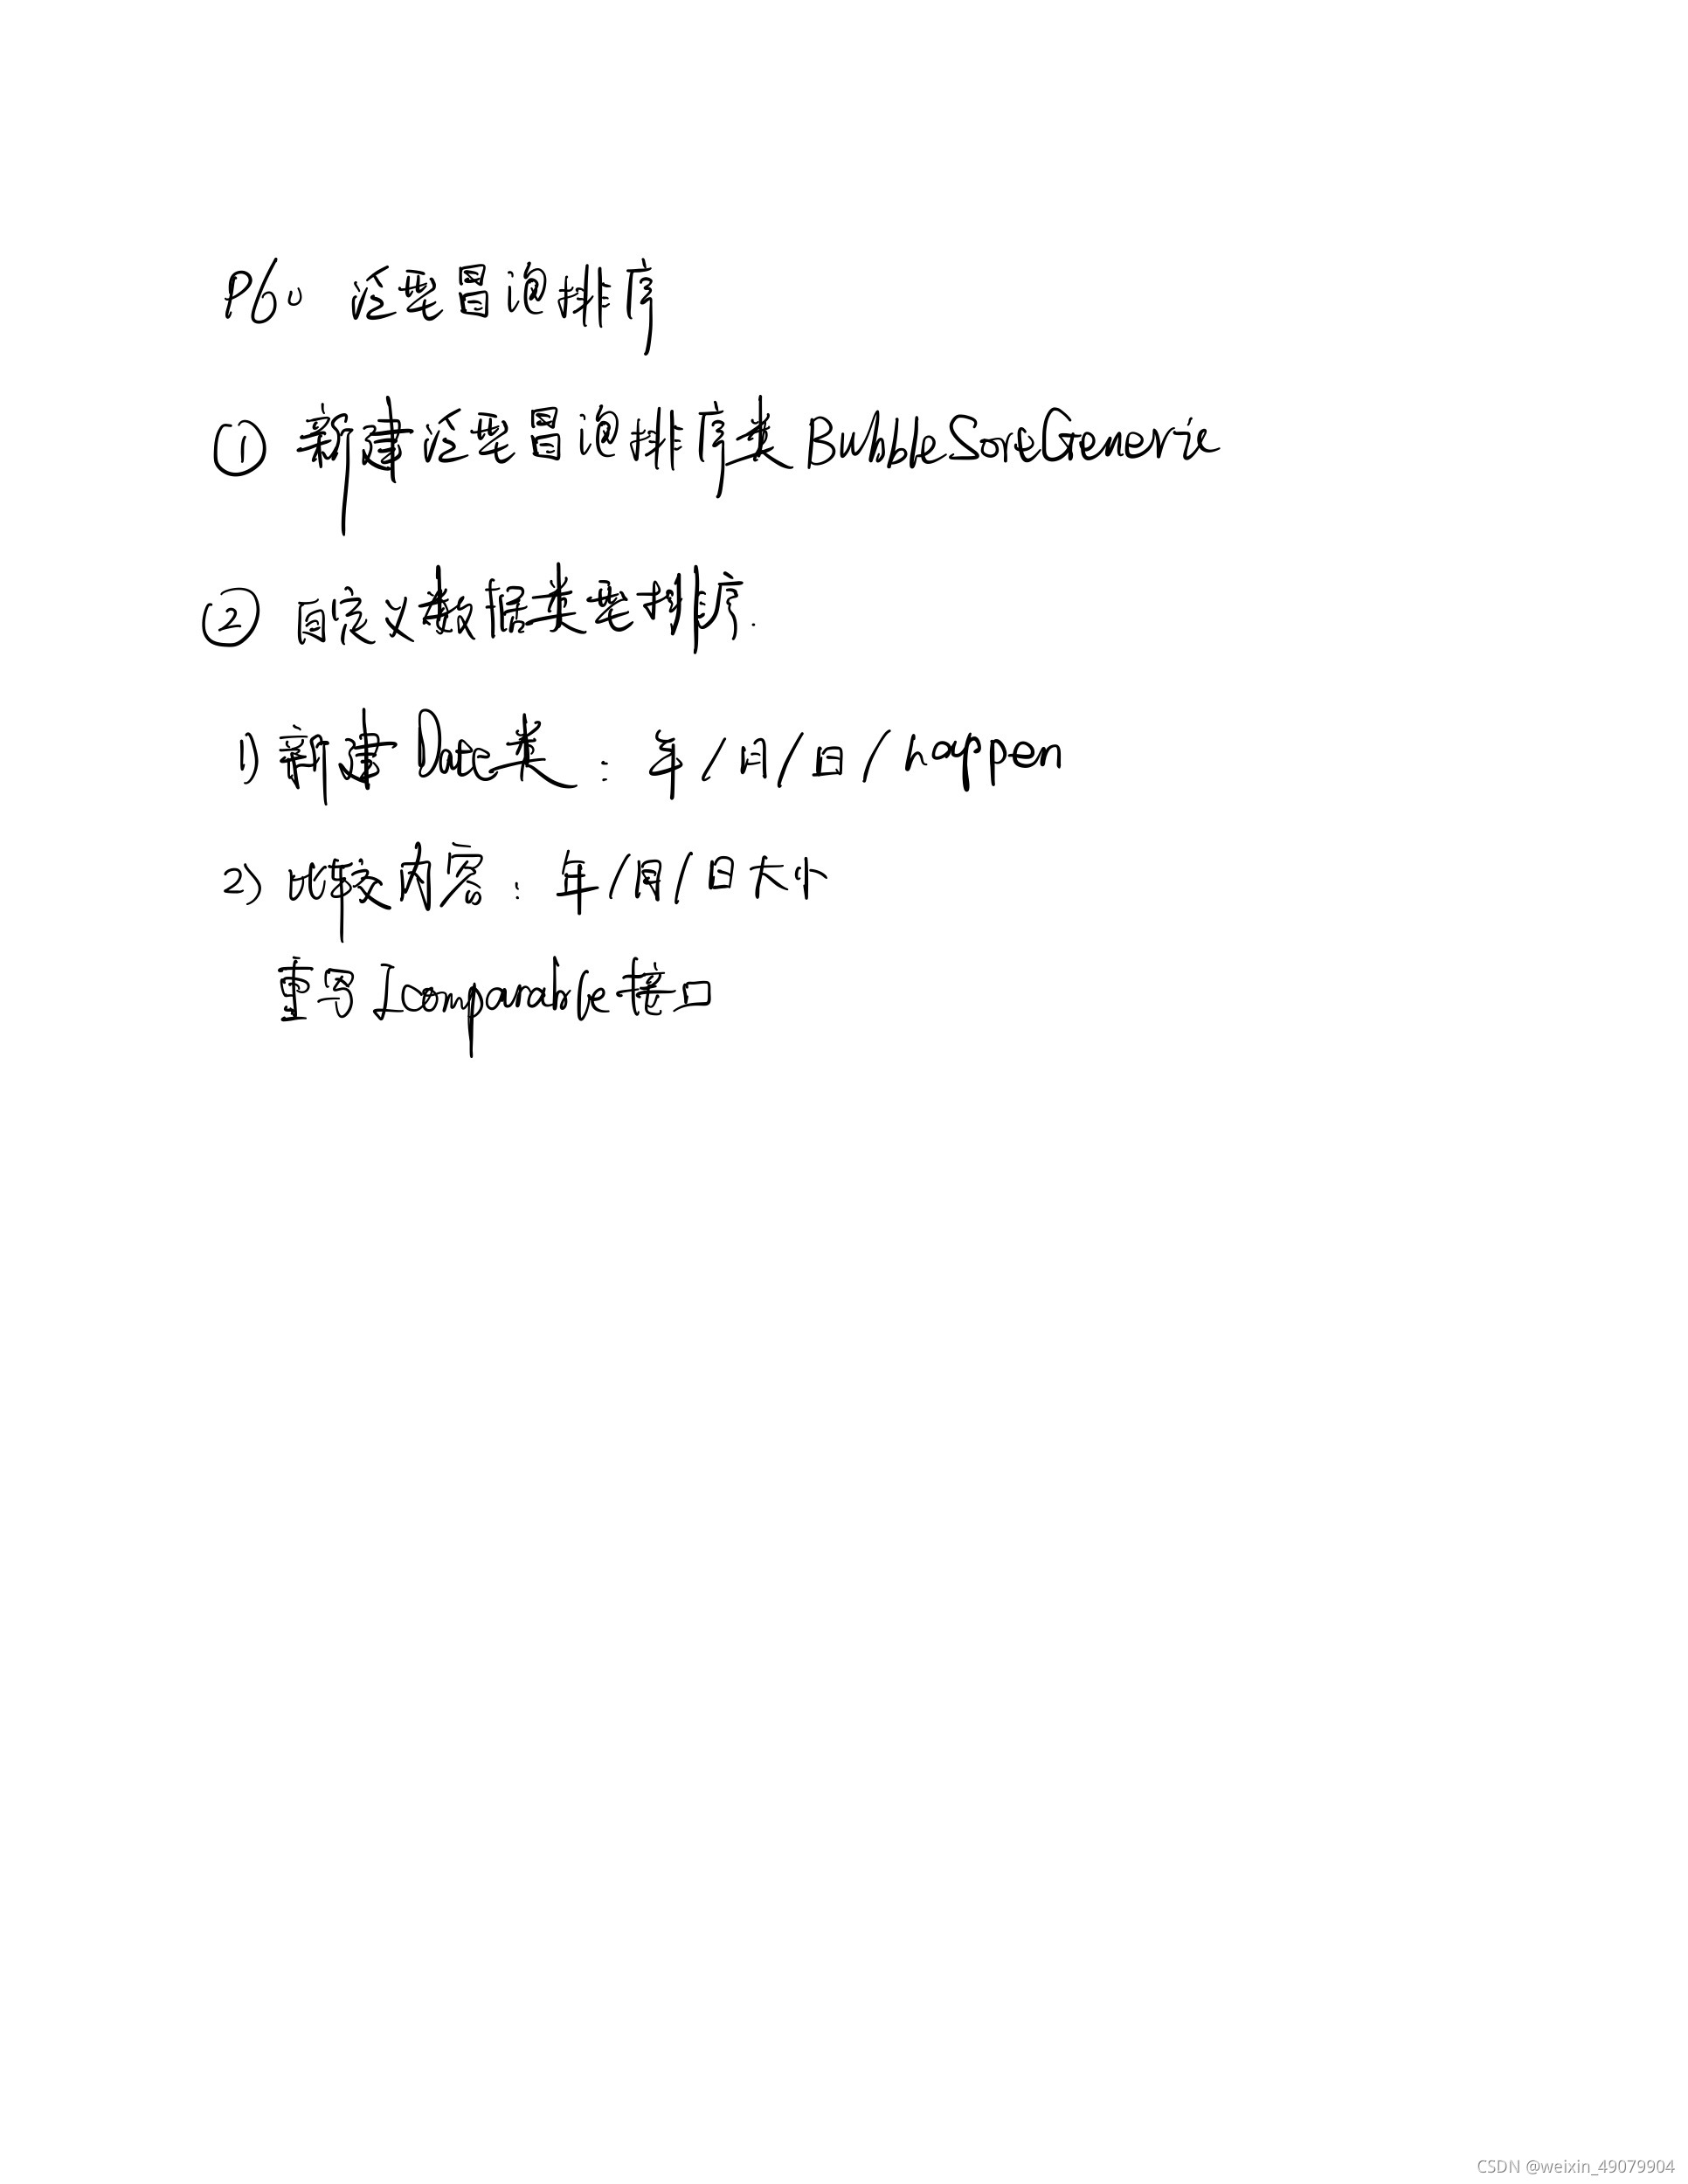 P60 泛型冒泡排序
① 新建泛型冒泡排序类BubbleSortGeneric
② 自定义数据类型排序.
1) 新建Date类：年/月/日/happen
2) 比较内容：年/月/日大小
重写Icomparable接口
CSDN @weixin_49079904